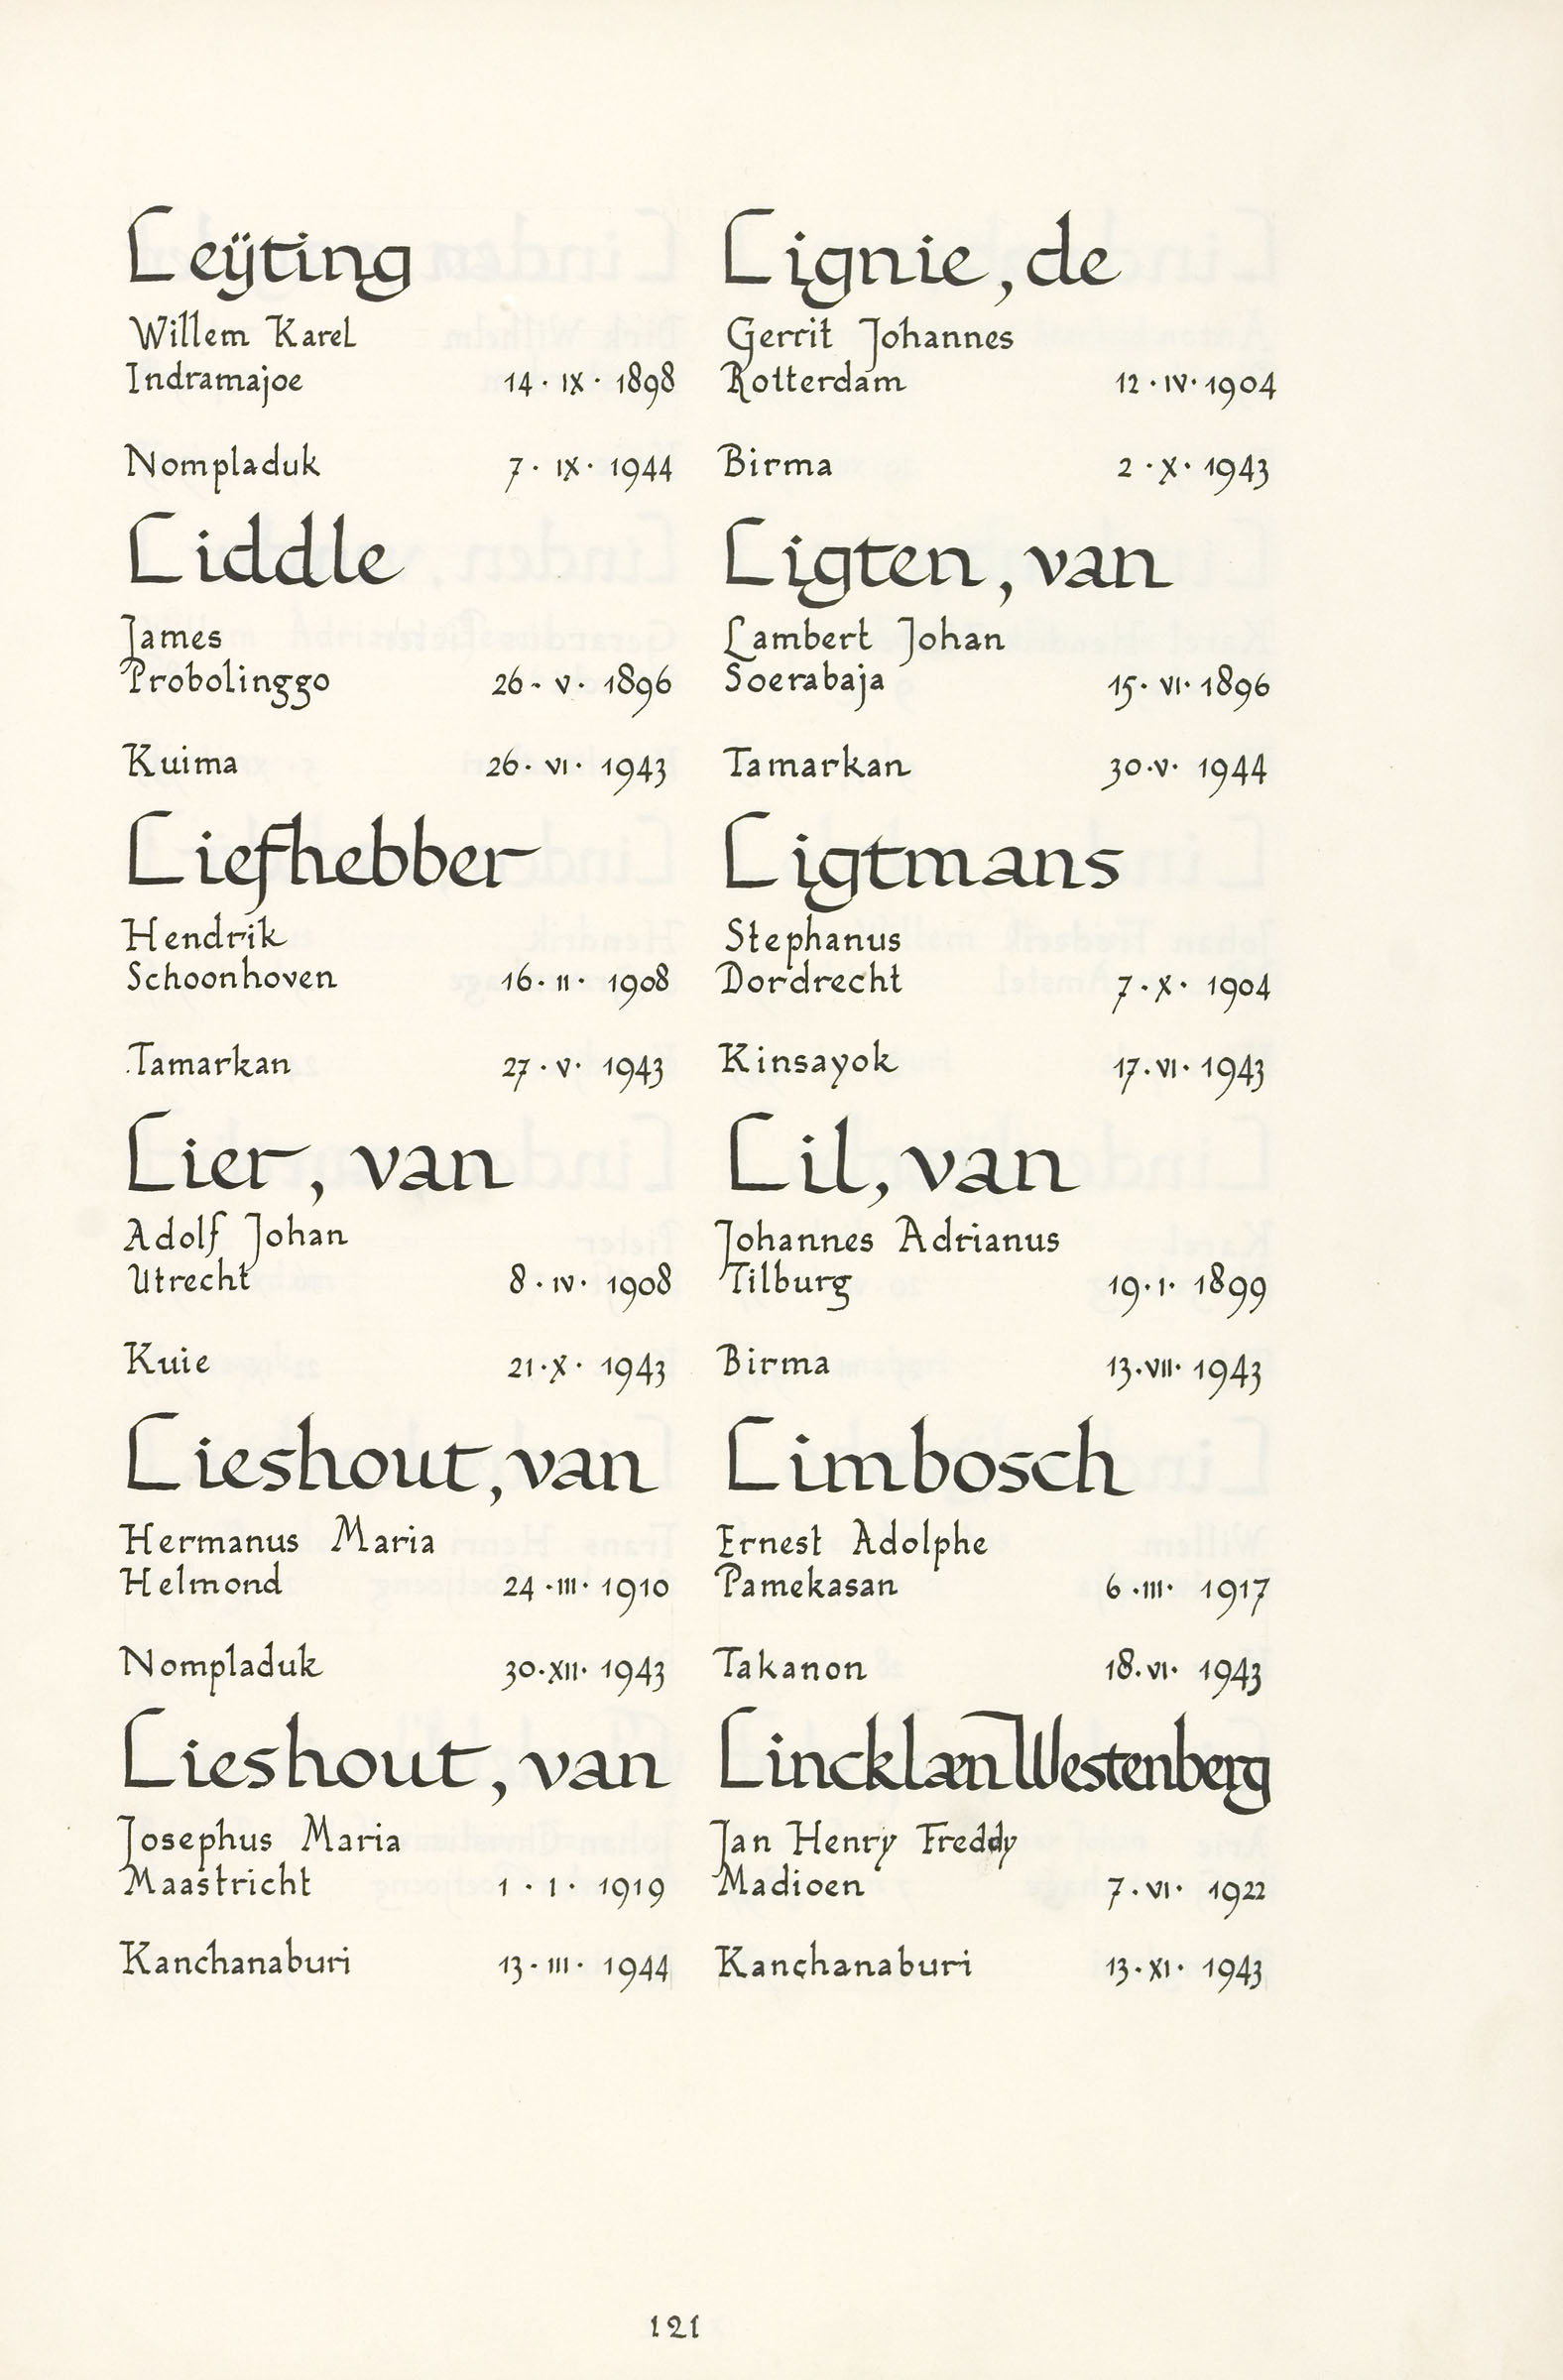 Leÿting
Willem Karel
Indramajoe 14 · IX · 1898
Nompladuk 7 · IX · 1944
Liddle
James
Probolinggo 26 - V · 1896
Kuima 26 · VI · 1943
Liefhebber
Hendrik
Schoonhoven 16 · II · 1908
Tamarkan 27 · V · 1943
Lier, van
Adolf Johan
Utrecht 8 · IV · 1908
Kuie 21 · X · 1943
Lieshout, van
Hermanus Maria
Helmond 24 · III · 1910
Nompladuk 30 · XII · 1943
Lieshout, van
Josephus Maria
Maastricht 1 · I · 1919
Kanchanaburi 13 · III · 1944
Lignie, de
Gerrit Johannes
Rotterdam 12 · IV · 1904
Birma 2 · X · 1943
Ligten, van
Lambert Johan
Soerabaja 15 · VI · 1896
Tamarkan 30 · V · 1944
Ligtmans
Stephanus
Dordrecht 7 · X · 1904
Kinsayok 17 · VI · 1943
Lil, van
Johannes Adrianus
Tilburg 19 · I · 1899
Birma 13 · VII · 1943
Limbosch
Ernest Adolphe
Pamekasan 6 · III · 1917
Takanon 18 · VI · 1943
Lincklaen Westenberg
Jan Henry Freddy
Madioen 7 · VI · 1922
Kanchanaburi 13 · XI · 1943
121